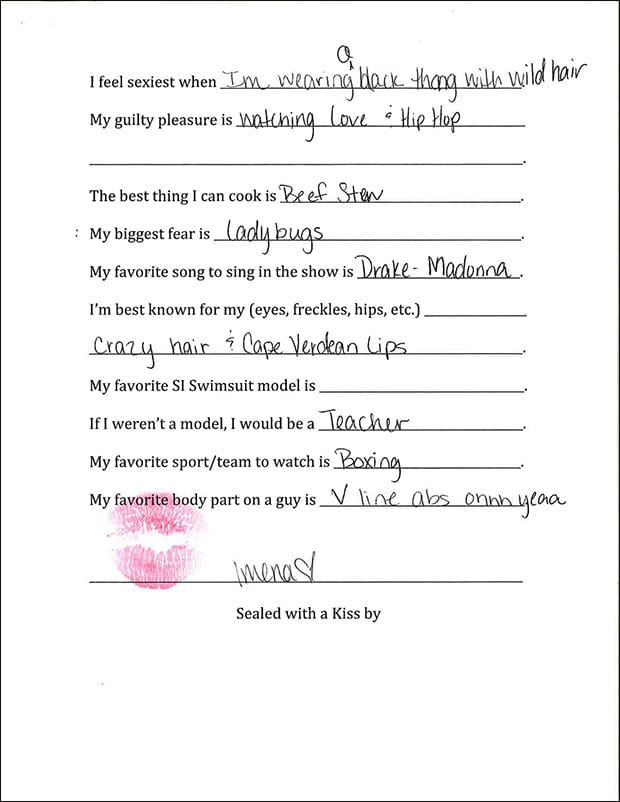 I feel sexiest when I'm wearing a black thong with wild hair
My guilty pleasure is watching Love & Hip Hop
.
The best thing I can cook is Beef Stew.
: My biggest fear is ladybugs.
My favorite song to sing in the show is Drake- Madonna.
I'm best known for my (eyes, freckles, hips, etc.)
Crazy hair & Cape Verdean Lips.
My favorite SI Swimsuit model is .
If I weren't a model, I would be a Teacher.
My favorite sport/team to watch is Boxing.
My favorite body part on a guy is V line abs onnn yeaa
Imena♡
Sealed with a Kiss by